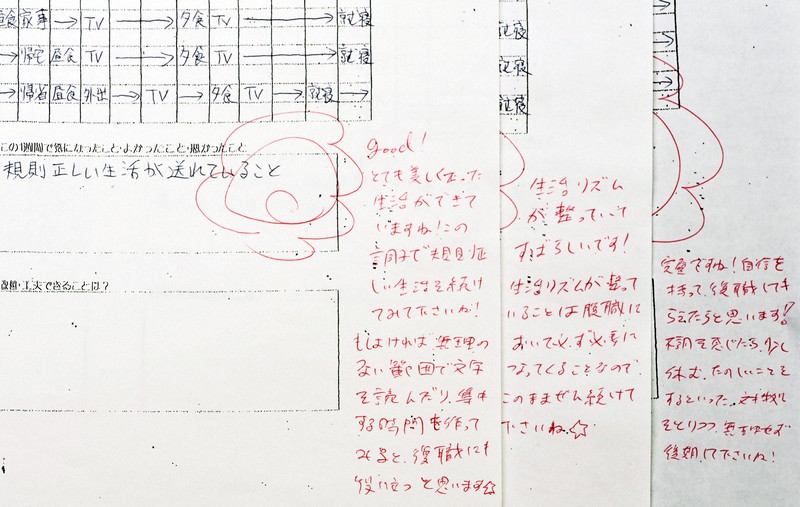 昼食 家事 → TV → 夕食 TV → 就寝
→ 帰宅 昼食 TV → 夕食 TV → 就寝
→ 帰省 昼食 外出 → TV → 夕食 TV → 就寝 →
この1週間で気になったこと・よかったこと・悪かったこと
規則正しい生活が送れていること
工夫できることは?
good!
とても美しくなった
生活ができて
いますね!この
調子で規則正
しい生活を続け
てみて下さいね!
もしよければ無理の
ない範囲で文字
を読んだり、集中
する時間を作って
みると、復職にも
役に立つと思います☆
就寝
就寝
就寝
生活リズム
が整っていて
すばらしいです!
生活リズムが整って
いることは復職に
おいて必ず必要に
なってくることなので、
このまません続けて
下さいね☆
完璧ですね!自信を
持って、復職しても
らえたらと思います!
不調を感じたら、少し
休む、たのしいことを
するといった、対処
をとりつつ、無理せず
後期、して下さいね!